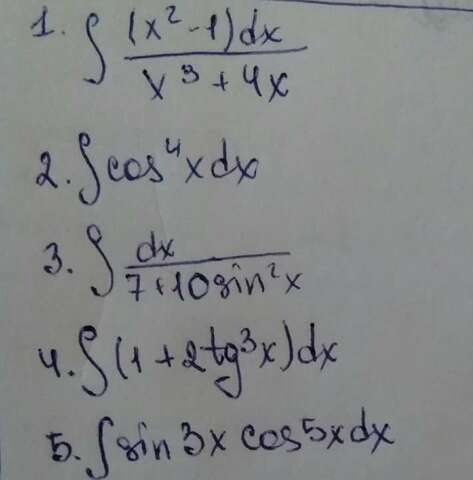 1. ∫ (x² - 1)dx / x³ + 4x
2. ∫cos⁴xdx
3. ∫ dx / 7+10sin²x
4. ∫(1 + 2tg³x)dx
5. ∫sin3x cos5xdx